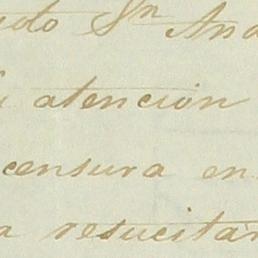 do Sn And
atencion
censura en
a resucitar